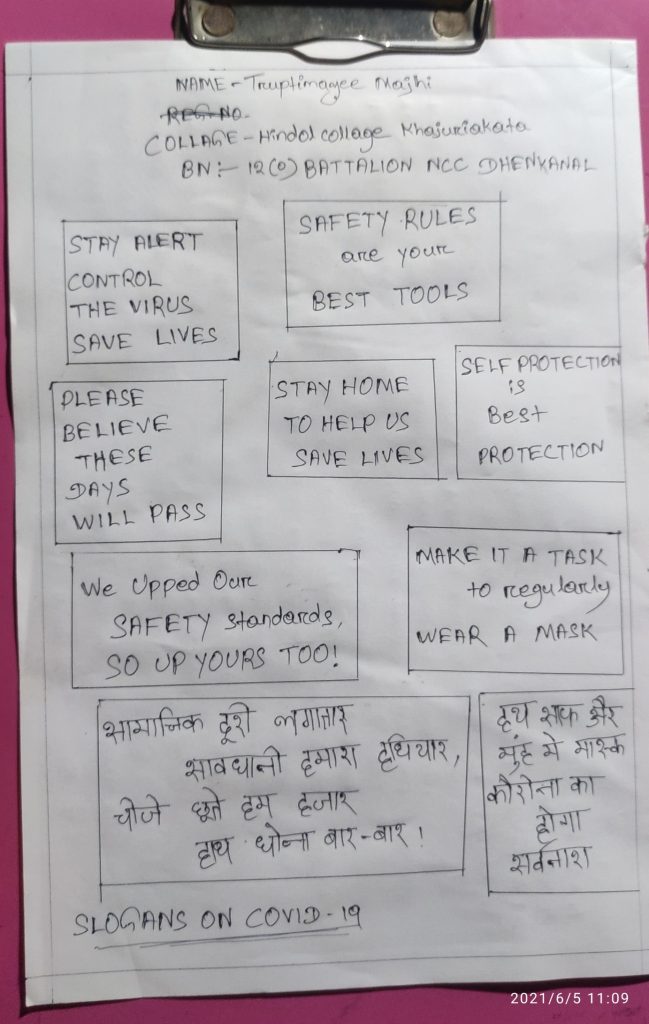 NAME - Truptimayee Majhi
REG NO.
COLLAGE - Hindol collage Khajuriakata
BN :- 12 (O) BATTALION NCC DHENKANAL
STAY ALERT
CONTROL
THE VIRUS
SAVE LIVES
SAFETY RULES
are your
BEST TOOLS
PLEASE
BELIEVE
THESE
DAYS
WILL PASS
STAY HOME
TO HELP US
SAVE LIVES
SELF PROTECTION
is
Best
PROTECTION
We Upped Our
SAFETY standards,
SO UP YOURS TOO!
MAKE IT A TASK
to regularly
WEAR A MASK
सामाजिक दूरी लगातार
सावधानी हमारा हथियार,
चीजे छूते हम हजार
हाथ धोना बार-बार !
हाथ साफ और
मुंह मे मास्क
कोरोना का
होगा
सर्वनाश
SLOGANS ON COVID-19
2021/6/5 11:09